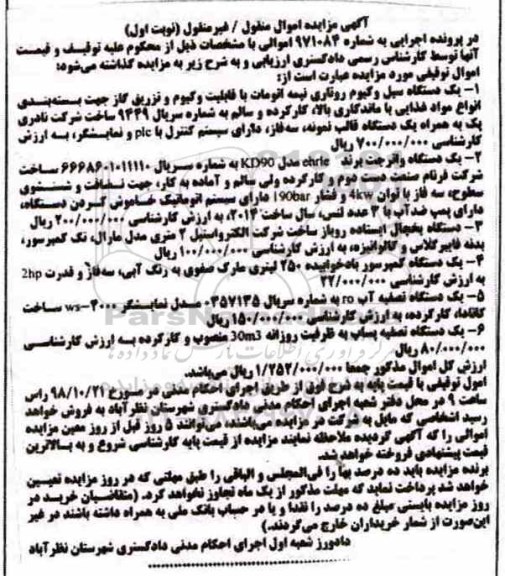 آگهی مزایده اموال منقول / غیرمنقول (نوبت اول)
در پرونده اجرایی به شماره ۹۷۱۰۸۴ اموالی با مشخصات ذیل از محکوم علیه توقیف و قیمت
آنها توسط کارشناس رسمی دادگستری ارزیابی و به شرح زیر به مزایده گذاشته می‌شود:
اموال توقیفی مورد مزایده عبارت است از:
۱- یک دستگاه سیل وکیوم روتاری نیمه اتومات با قابلیت وکیوم و تزریق گاز جهت بسته‌بندی
انواع مواد غذایی با ماندگاری بالا، کارکرده و سالم به شماره سریال ۹۴۴۹ ساخت شرکت نادری
پک به همراه یک دستگاه قالب نمونه، سه‌فاز، دارای سیستم کنترل با plc و نمایشگر، به ارزش
کارشناسی ۷۰۰/۰۰۰/۰۰۰ ریال
۲- یک دستگاه واترجت برند ehrle مدل KD90 به شماره سریال ۶۶۶۸۶۰۱۰۱۱۱۱۰ ساخت
شرکت فرنام صنعت دست دوم و کارکرده ولی سالم و آماده به کار، جهت نظافت و شستشوی
سطوح، سه فاز با توان 4kw و فشار 190bar دارای سیستم اتوماتیک خاموش کردن دستگاه،
دارای پمپ ضدآب با ۳ عدد لنس، سال ساخت ۲۰۱۴، به ارزش کارشناسی ۲۰۰/۰۰۰/۰۰۰ ریال
۳- دستگاه یخچال ایستاده روباز ساخت شرکت الکترواستیل ۲ متری مدل مارال، تک کمپرسور،
بدنه فایبرگلاس و گالوانیزه، به ارزش کارشناسی ۱۰۰/۰۰۰/۰۰۰ ریال
۴- یک دستگاه کمپرسور بادخوابیده ۲۵۰ لیتری مارک صفوی به رنگ آبی، سه‌فاز و قدرت 2hp
به ارزش کارشناسی ۲۲/۰۰۰/۰۰۰
۵- یک دستگاه تصفیه آب ro به شماره سریال ۰۳۵۷۱۳۵ مدل نمایشگر ws-۲۰۰۰ ساخت
کانادا، کارکرده، به ارزش کارشناسی ۱۵۰/۰۰۰/۰۰۰ ریال
۶- یک دستگاه تصفیه پساب به ظرفیت روزانه 30m3 منصوب و کارکرده به ارزش کارشناسی
۸۰/۰۰۰/۰۰۰ ریال
ارزش کل اموال مذکور جمعا ۱/۲۵۲/۰۰۰/۰۰۰ ریال می‌باشد.
امول توقیفی با قیمت پایه به شرح فوق از طریق اجرای احکام مدنی در مورخ ۹۸/۱۰/۲۱ راس
ساعت ۹ در محل دفتر شعبه اجرای احکام مدنی دادگستری شهرستان نظرآباد به فروش خواهد
رسید اشخاصی که مایل به شرکت در مزایده می‌باشند، می‌توانند ۵ روز قبل از روز معین مزایده
اموالی را که آگهی گردیده ملاحظه نمایند مزایده از قیمت پایه کارشناسی شروع و به بالاترین
قیمت پیشنهادی فروخته خواهد شد.
برنده مزایده باید ده درصد بها را فی‌المجلس و الباقی را طبق مهلتی که در روز مزایده تعیین
خواهد شد پرداخت نماید که مهلت مذکور از یک ماه تجاوز نخواهد کرد. (متقاضیان خرید در
روز مزایده بایستی مبلغ ده درصد را نقدا و یا در حساب بانک ملی به همراه داشته باشند در غیر
این‌صورت از شمار خریداران خارج می‌گردند.)
دادورز شعبه اول اجرای احکام مدنی دادگستری شهرستان نظرآباد